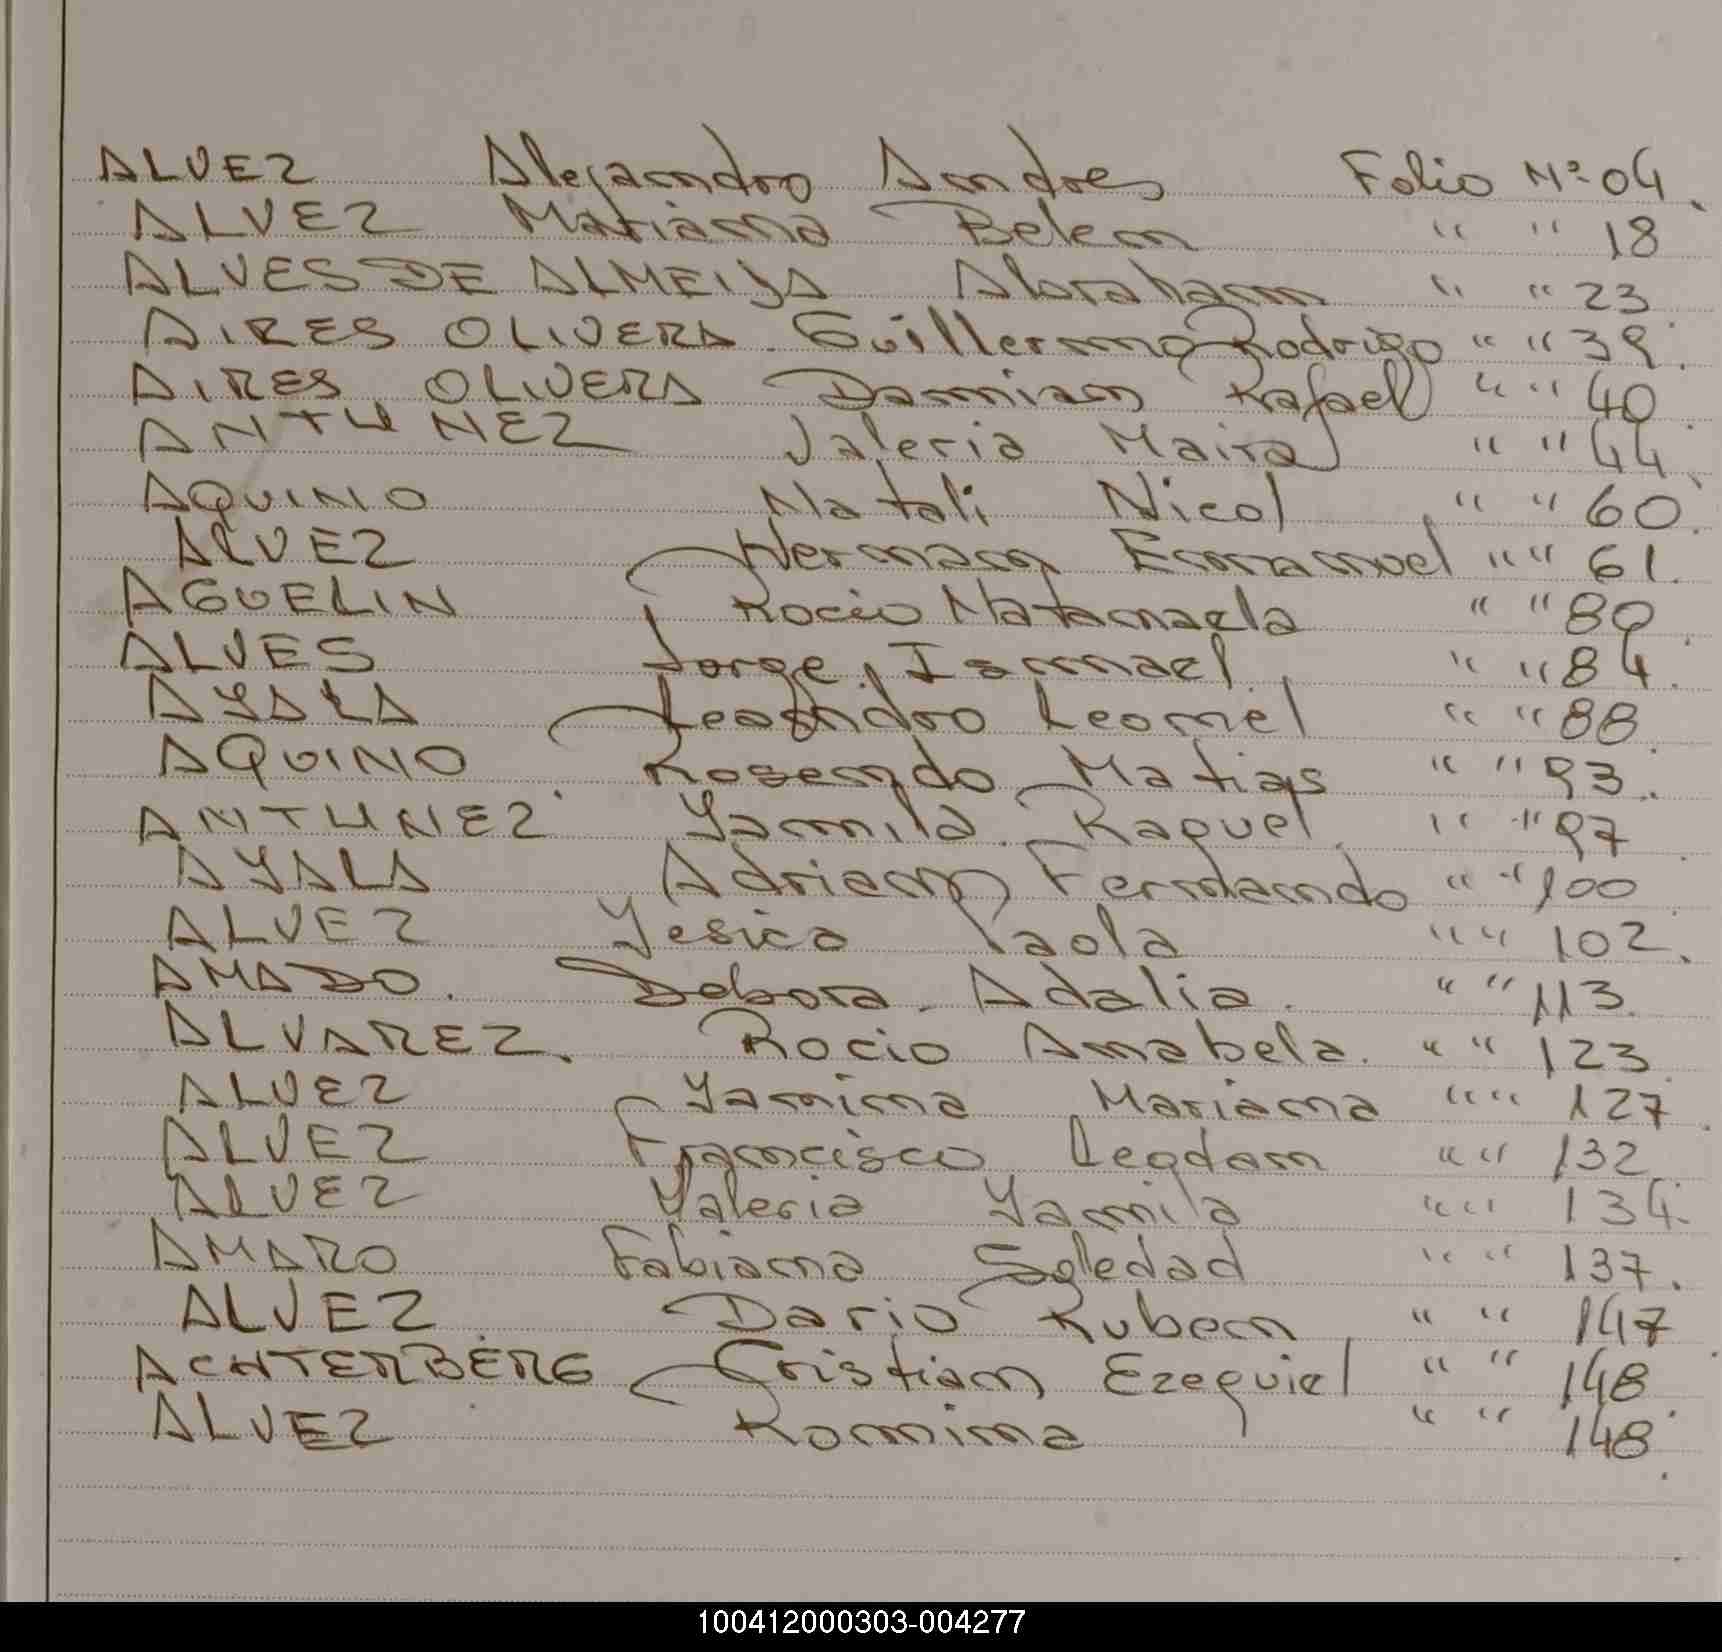 ALVEZ Alejandro Andres Folio Nº 04
ALVEZ Mariana Belen " " 18
ALVES DE ALMEIDA Abraham " " 23
AIRES OLIVERA Guillermo Rodrigo " " 39
AIRES OLIVERA Damian Rafael " " 40
ANTUNEZ Valeria Maira " " 44
AQUINO Natali Nicol " " 60
ALVEZ Hernan Emmanuel " " 61
AGUELIN Rocio Natanaela " " 80
ALVES Jorge Ismael " " 84
AYALA Leandro Leonel " " 88
AQUINO Rosendo Matias " " 93
ANTUNEZ Yamila Raquel " " 97
AYALA Adrian Fernando " " 100
ALVEZ Yesica Paola " " 102
AMADO. Debora Adalia. " " 113
ALVAREZ. Rocio Anabela. " " 123
ALVEZ Yamina Mariana " " 127
ALVEZ Francisco " " 132
ALVEZ Valeria Yamila " " 134
AMARO Fabiana Soledad " " 137.
ALVEZ Dario Ruben " " 147
ACHTERBERG Cristian Ezequiel " " 148
ALVEZ Romina " " 148
100412000303-004277